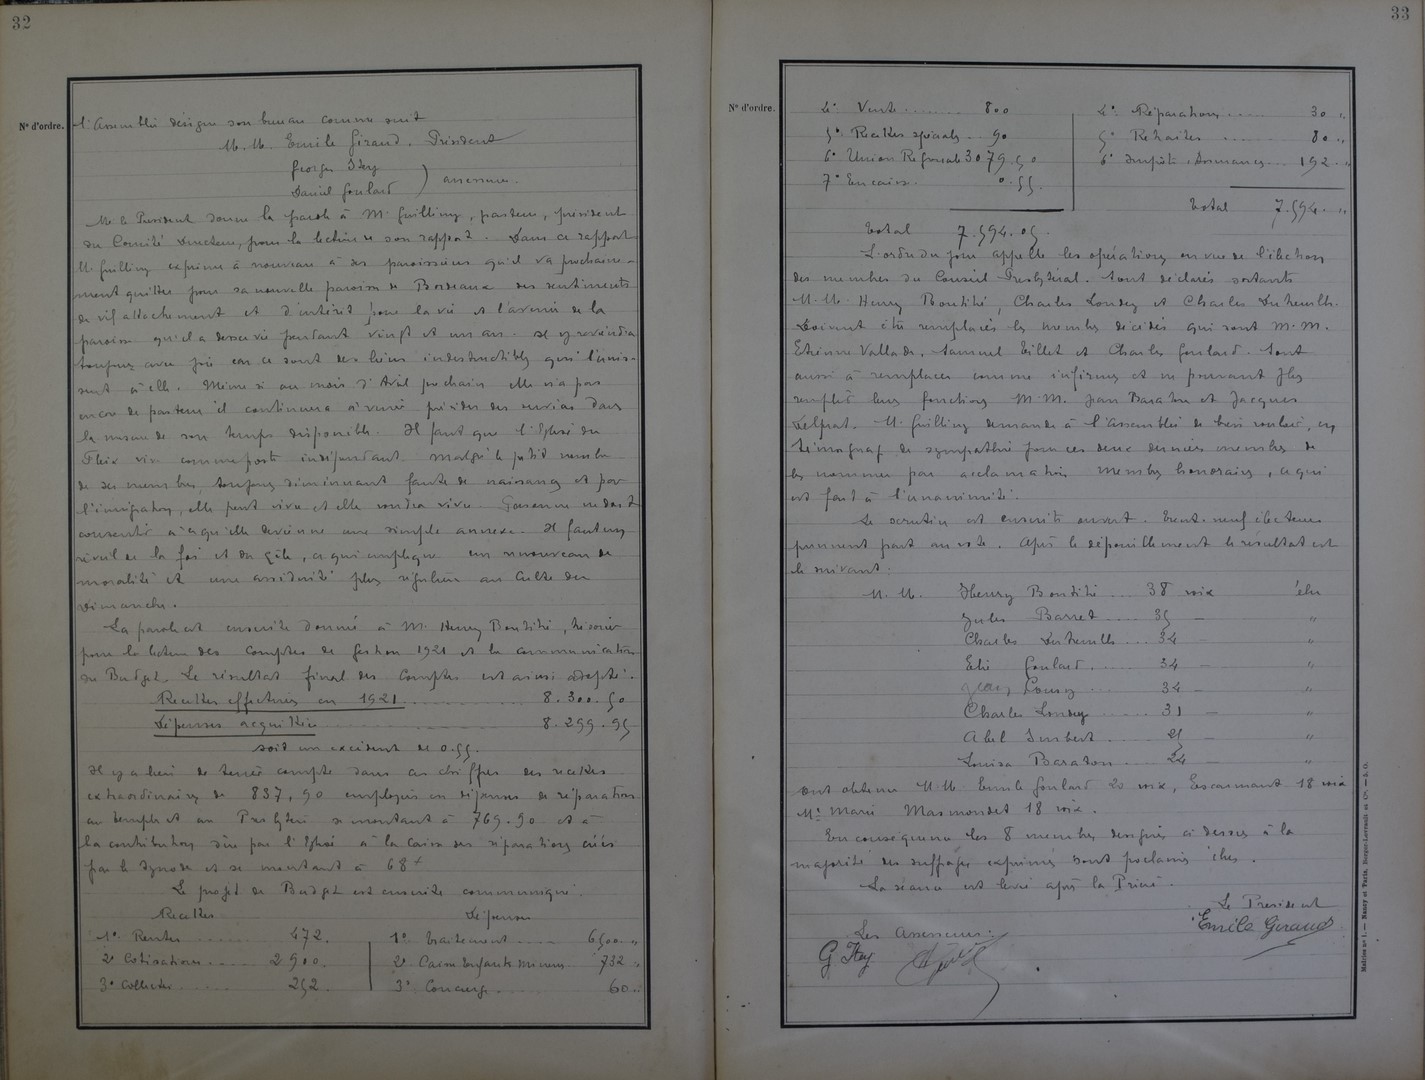 32
N° d'ordre.
l'Assemblée désigne son bureau comme suit
M. M. Emile Giraud. Président
Georges Hey
Daniel Goulard ) assesseurs.
Mr le Président donne la parole à M. Guilling, pasteur, président
du Comité Directeur, pour la lecture de son rapport. Dans ce rapport
M. Guilling exprime à nouveau à ses paroissiens qu'il va prochaine-
ment quitter pour sa nouvelle paroisse de Bordeaux des sentiments
de vif attachement et d'intérêt pour la vie et l'avenir de la
paroisse qu'il a desservie pendant vingt et un ans. Il y reviendra
toujours avec joie car ce sont des liens indestructibles qui l'unis-
sent à elle. Même si au mois d'Avril prochain elle n'a pas
encore de pasteur il continuera à venir présider des services dans
la mesure de son temps disponible. Il faut que l'Eglise du
Fleix vive comme poste indépendant. Malgré le petit nombre
de ses membres, toujours diminuant faute de naissances et par
l'émigration, elle peut vivre et elle voudra vivre. Personne ne doit
consentir à ce qu'elle devienne une simple annexe. Il faut un
réveil de la foi et du zèle, ce qui implique un renouveau de
moralité et une assiduité plus régulière au Culte du
Dimanche.
La parole est ensuite donnée à M. Henry Bontitié, trésorier
pour la lecture des Comptes de Gestion 1921 et la communication
du Budget. Le résultat final des Comptes est ainsi adopté.
Recettes effectuées en 1921 ........ 8.300.50
Dépenses acquittées ........ 8.299.95
soit un excédent de 0.55.
Il y a lieu de tenir compte dans ces chiffres des recettes
extraordinaires de 837,90 employées en dépenses de réparations
au temple et au Presbytère se montant à 769.90 et à
la contribution due par l'Eglise à la Caisse des réparations créée
par le Synode et se montant à 68 f
Le projet de Budget est ensuite communiqué.
Recettes Dépenses
1° Rentes ...... 472. 1° Traitement ..... 6500. "
2° Cotisations .... 2900. 2° Caisse Enfants Mineurs 732 "
3° Collectes ...... 252. 3° Concierge ...... 60 "
33
N° d'ordre.
4° Vente ....... 800 4° Réparations ..... 30 "
5° Recettes spéciales .. 90 5° Retraites ..... 80 "
6° Union Régionale 3079.50 6° Impôts Assurances .... 192 "
7° En caisse. 0.55. Total 7.594. "
Total 7.594.05.
L'ordre du jour appelle les opérations en vue de l'élection
des membres du Conseil Presbytéral. Sont déclarés sortants
M. M. Henry Bontitié, Charles Loudey et Charles Dutreuilh.
Doivent être remplacés les membres décédés qui sont M. M.
Etienne Vallade, Samuel Tillet et Charles Goulard. Sont
aussi à remplacer comme infirmes et ne pouvant plus
remplir leurs fonctions M. M. Jean Baraton et Jacques
Delprat. M. Guilling demande à l'Assemblée de bien vouloir, en
témoignage de sympathie pour ces deux derniers membres de
les nommer par acclamation Membres honoraires, ce qui
est fait à l'unanimité.
Le scrutin est ensuite ouvert. Trente-neuf électeurs
prennent part au vote. Après le dépouillement le résultat est
le suivant:
M. M. Henry Bontitié ... 38 voix élu
Jules Barret ... 35 — "
Charles Dutreuilh ... 34 — "
Elie Goulard ...... 34 — "
Jean Loussy ...... 34 — "
Charles Loudey ...... 31 — "
Abel Imbert ...... 25 — "
Louisa Baraton .... 24 — "
ont obtenu M. M. Emile Goulard 20 voix, Escarmant 18 voix
Me Marie Masmondet 18 voix.
En conséquence les 8 membres désignés ci dessus à la
majorité des suffrages exprimés sont proclamés élus.
La séance est levée après la Prière.
Le Président
Emile Giraud
Les Assesseurs:
G Hey
Modèle n° 1. — Nancy et Paris, Berger-Levrault et Cie. — 5. O.